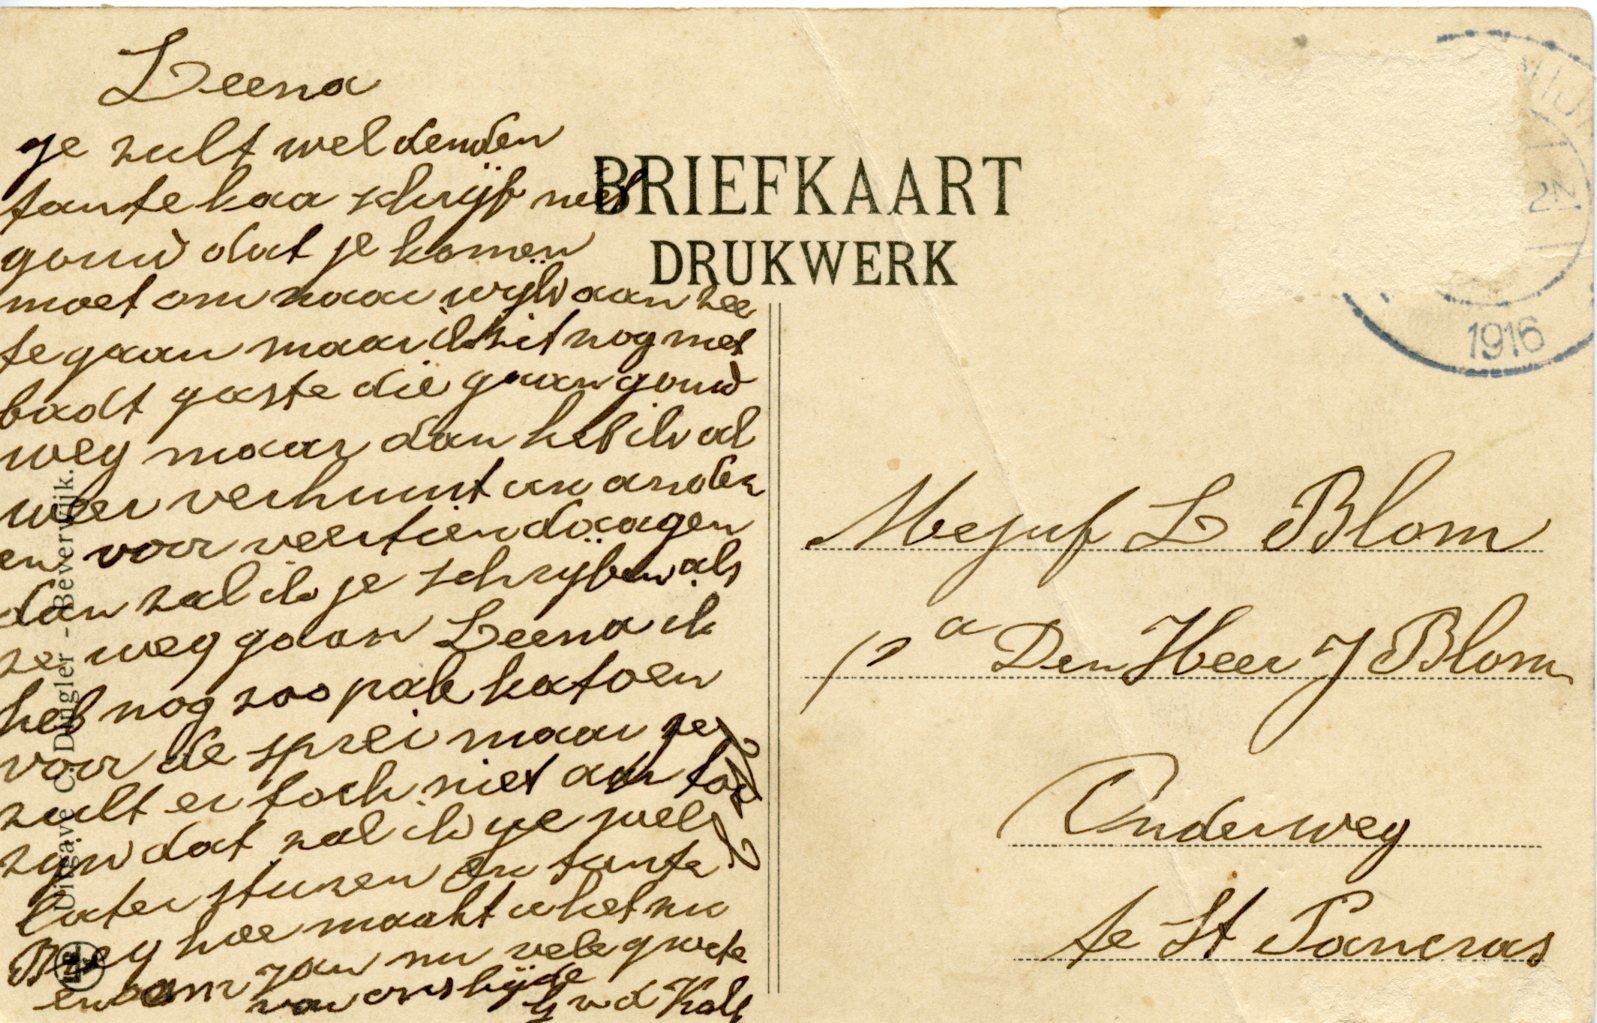 Leena
je zult wel denden
tante kaa schrijf niet
gouw dat je komen
moet om naar wijk aan zee
te gaan maar ik zit nog met
badt gaste die gaan gouw
weg maar dan heb ik al
weer verhuurt an anden
en voor veertien daagen
dan zal ik je schrijben als
ze weg gaan Leena ik
heb nog zoo pak katoen
voor de sprei maar je
zult er toch niet aan toe
zijn dat zal ik je wel
later sturen En tante
hoe maakt u het nu
en oom Jan nu vele groete
van ons bijde
G v d Kolk
BRIEFKAART
DRUKWERK
1916
2N
Mejuf L Blom
p a Den Heer J Blom
Onderweg
te St Pancras
Uitgave C. Dingler - Beverwijk.